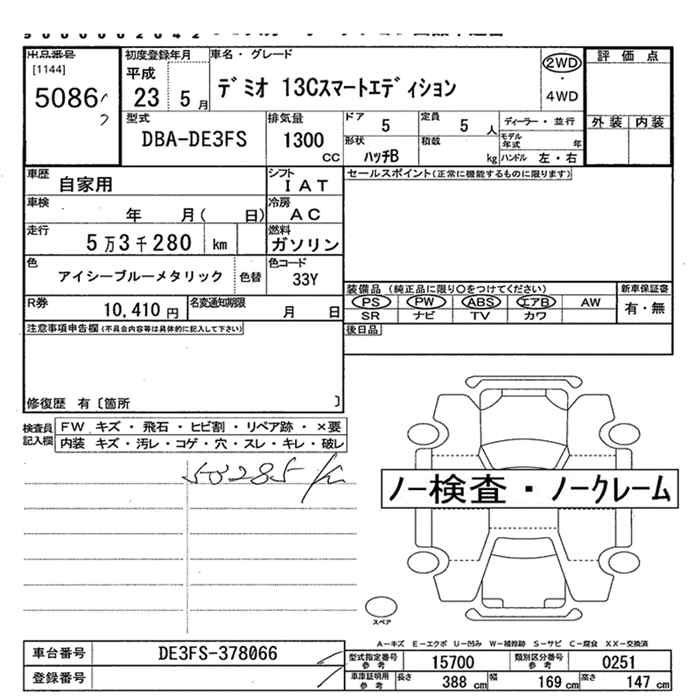 出品番号
[1144]
5086
初度登録年月
平成
23 5月
車名・グレード
デミオ 13Cスマートエディション
2WD
・
4WD
評価点
外装 内装
型式
DBA-DE3FS
排気量
1300
CC
ドア 5
定員 5 人
ディーラー・並行
形状 ハッチB
積載 kg
モデル年式 年
ハンドル 左・右
車歴 自家用
シフト IAT
セールスポイント(正常に機能するものに限ります)
車検 年 月( 日)
冷房 AC
走行 5万3千280 km
燃料 ガソリン
色 アイシーブルーメタリック 色替
色コード 33Y
装備品 (純正品に限り○をつけてください)
新車保証書
PS PW ABS エアB AW
有・無
SR ナビ TV カワ
R券 10,410 円
名変通知期限 月 日
後日品
注意事項申告欄(不具合内容等は具体的に記入して下さい)
修復歴 有〔箇所 〕
検査員記入欄
FW キズ・飛石・ヒビ割・リペア跡・×要
内装 キズ・汚レ・コゲ・穴・スレ・キレ・破レ
53285 km
ノー検査・ノークレーム
スペア
A-キズ E-エクボ U-凹み W-補修跡 S-サビ C-腐食 XX-交換済
車台番号 DE3FS-378066
登録番号
型式指定番号参考 15700
類別区分番号参考 0251
車庫証明用参考 長さ 388 cm 幅 169 cm 高さ 147 cm